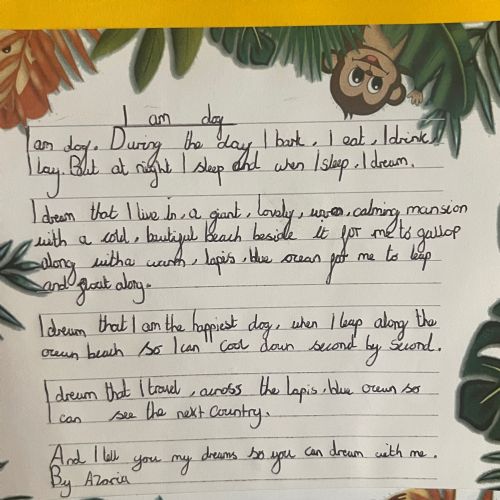 I am dog
I am dog. During the day I bark, I eat, I drink,
I lay. But at night I sleep and when I sleep, I dream.
I dream that I live in, a giant, lovely, calming mansion
with a cold, beutiful beach beside it for me to gallop
along with a warm, lapis, blue ocean for me to leap
and float along.
I dream that I am the happiest dog, when I leap along the
ocean beach so I can cool down second by second.
I dream that I travel, across the lapis, blue ocean so
I can see the next country.
And I tell you my dreams so you can dream with me.
By Azaria